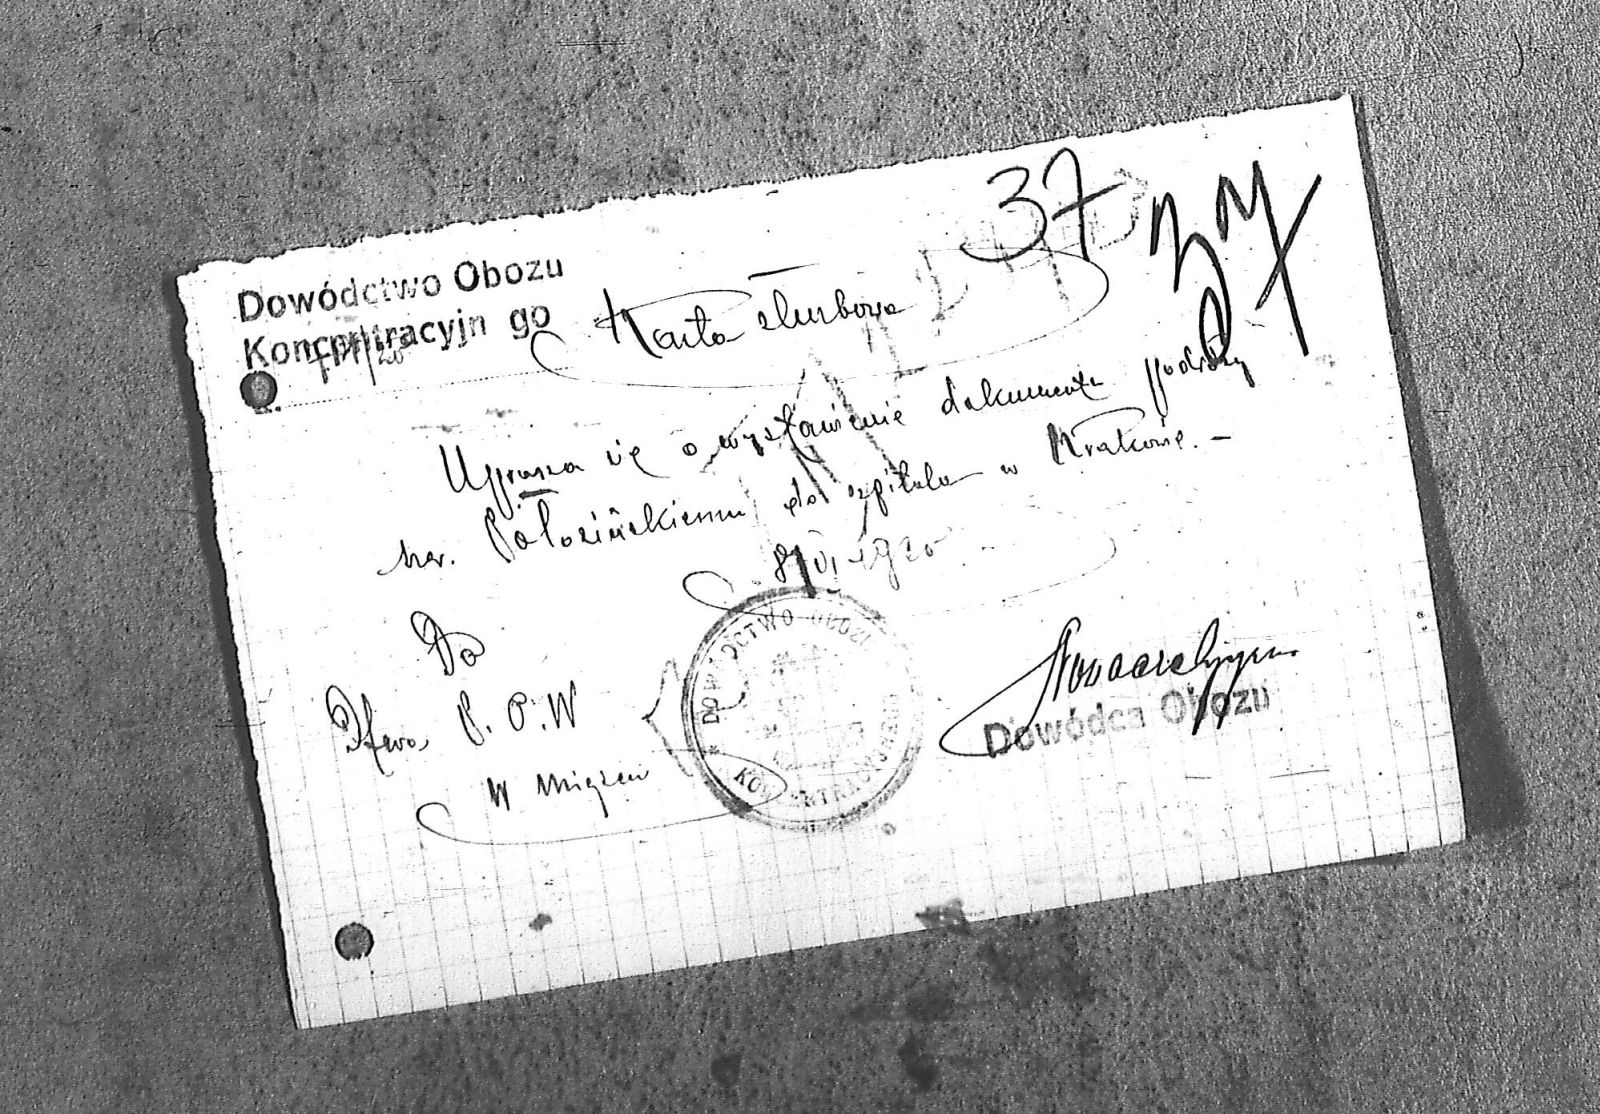 37 37
Dowódctwo Obozu
Koncentracyjn go
Karta służbowa
Uprasza się o wystawienie dokumentu podróży
Połozińskiemu do szpitala w Krakowie. –
8/VI. 1920
Do
P. O. W
W
DOWÓDCTWO OBOZU
KONCENTRACYJNEGO
Dowódca Obozu